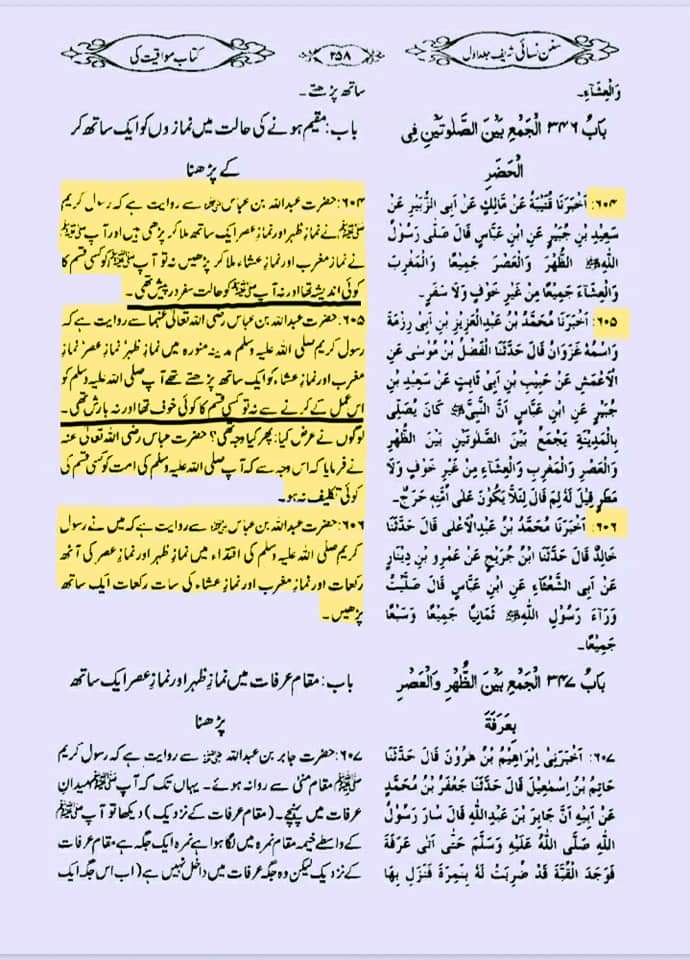 سنن نسائی شریف جلد اول
۳۵۸
کتاب مواقیت کی
وَالْعِشَاءِ۔
بَابُ ۳۴۶ الْجَمْعِ بَيْنَ الصَّلٰوتَيْنِ فِی
الْحَضَرِ
۶۰۴: اَخْبَرَنَا قُتَيْبَةُ عَنْ مَالِكٍ عَنْ اَبِی الزُّبَيْرِ عَنْ
سَعِيْدِ بْنِ جُبَيْرٍ عَنِ ابْنِ عَبَّاسٍ قَالَ صَلّٰی رَسُوْلُ
اللّٰهِ ﷺ الظُّهْرَ وَالْعَصْرَ جَمِيْعًا وَالْمَغْرِبَ
وَالْعِشَاءَ جَمِيْعًا مِنْ غَيْرِ خَوْفٍ وَلَا سَفَرٍ۔
۶۰۵: اَخْبَرَنَا مُحَمَّدُ بْنُ عَبْدِالْعَزِيْزِ بْنِ اَبِی رِزْمَةَ
وَاسْمُهٗ غَزْوَانُ قَالَ حَدَّثَنَا الْفَضْلُ بْنُ مُوْسٰی عَنِ
الْاَعْمَشِ عَنْ حَبِيْبِ بْنِ اَبِی ثَابِتٍ عَنْ سَعِيْدِ بْنِ
جُبَيْرٍ عَنِ ابْنِ عَبَّاسٍ اَنَّ النَّبِیَّ ﷺ كَانَ يُصَلِّی
بِالْمَدِيْنَةِ يَجْمَعُ بَيْنَ الصَّلٰوتَيْنِ بَيْنَ الظُّهْرِ
وَالْعَصْرِ وَالْمَغْرِبِ وَالْعِشَاءِ مِنْ غَيْرِ خَوْفٍ وَلَا
مَطَرٍ قِيْلَ لَهٗ لِمَ قَالَ لِئَلَّا يَكُوْنَ عَلٰی اُمَّتِهٖ حَرَجٌ۔
۶۰۶: اَخْبَرَنَا مُحَمَّدُ بْنُ عَبْدِالْاَعْلٰی قَالَ حَدَّثَنَا
خَالِدٌ قَالَ حَدَّثَنَا ابْنُ جُرَيْجٍ عَنْ عَمْرِو بْنِ دِيْنَارٍ
عَنْ اَبِی الشَّعْثَاءِ عَنِ ابْنِ عَبَّاسٍ قَالَ صَلَّيْتُ
وَرَآءَ رَسُوْلِ اللّٰهِ ﷺ ثَمَانِيًا جَمِيْعًا وَسَبْعًا
جَمِيْعًا۔
بَابُ ۳۴۷ الْجَمْعِ بَيْنَ الظُّهْرِ وَالْعَصْرِ
بِعَرَفَةَ
۶۰۷: اَخْبَرَنِیْ اِبْرَاهِيْمُ بْنُ هٰرُوْنَ قَالَ حَدَّثَنَا
حَاتِمُ بْنُ اِسْمٰعِيْلَ قَالَ حَدَّثَنَا جَعْفَرُ بْنُ مُحَمَّدٍ
عَنْ اَبِيْهِ اَنَّ جَابِرَ بْنَ عَبْدِاللّٰهِ قَالَ سَارَ رَسُوْلُ
اللّٰهِ صَلَّی اللّٰهُ عَلَيْهِ وَسَلَّمَ حَتّٰی اَتٰی عَرَفَةَ
فَوَجَدَ الْقُبَّةَ قَدْ ضُرِبَتْ لَهٗ بِنَمِرَةَ فَنَزَلَ بِهَا
ساتھ پڑھتے۔
باب: مقیم ہونے کی حالت میں نمازوں کو ایک ساتھ کر
کے پڑھنا
۶۰۴: حضرت عبداللہ بن عباس ؓ سے روایت ہے کہ رسول کریم
ﷺ نے نمازِ ظہر اور نمازِ عصر ایک ساتھ ملا کر پڑھی ہیں اور آپ ﷺ
نے نماز مغرب اور نماز عشاء ملا کر پڑھیں نہ تو آپ ﷺ کو کسی قسم کا
کوئی اندیشہ تھا اور نہ آپ ﷺ کو حالت سفر در پیش تھی۔
۶۰۵: حضرت عبداللہ بن عباس رضی اللہ تعالیٰ عنہما سے روایت ہے کہ
رسول کریم صلی اللہ علیہ وسلم مدینہ منورہ میں نماز ظہر نماز عصر نماز
مغرب اور نماز عشاء کو ایک ساتھ پڑھتے تھے آپ صلی اللہ علیہ وسلم کو
اس عمل کے کرنے سے نہ تو کسی قسم کا کوئی خوف تھا اور نہ بارش تھی۔
لوگوں نے عرض کیا: پھر کیا وجہ تھی؟ حضرت عباس رضی اللہ تعالیٰ عنہ
نے فرمایا کہ اس وجہ سے کہ آپ صلی اللہ علیہ وسلم کی امت کو کسی قسم کی
کوئی تکلیف نہ ہو۔
۶۰۶: حضرت عبداللہ بن عباس ؓ سے روایت ہے کہ میں نے رسول
کریم صلی اللہ علیہ وسلم کی اقتداء میں نمازِ ظہر اور نمازِ عصر کی آٹھ
رکعات اور نمازِ مغرب اور نمازِ عشاء کی سات رکعات ایک ساتھ
پڑھیں۔
باب: مقام عرفات میں نمازِ ظہر اور نمازِ عصر ایک ساتھ
پڑھنا
۶۰۷: حضرت جابر بن عبداللہ ؓ سے روایت ہے کہ رسول کریم
ﷺ مقام منیٰ سے روانہ ہوئے۔ یہاں تک کہ آپ ﷺ میدانِ
عرفات میں پہنچے۔ (مقام عرفات کے نزدیک) دیکھا تو آپ ﷺ
کے واسطے خیمہ مقام نمرہ میں لگا ہوا ہے نمرہ ایک جگہ ہے مقام عرفات
کے نزدیک لیکن وہ جگہ عرفات میں داخل نہیں ہے (اب اس جگہ ایک